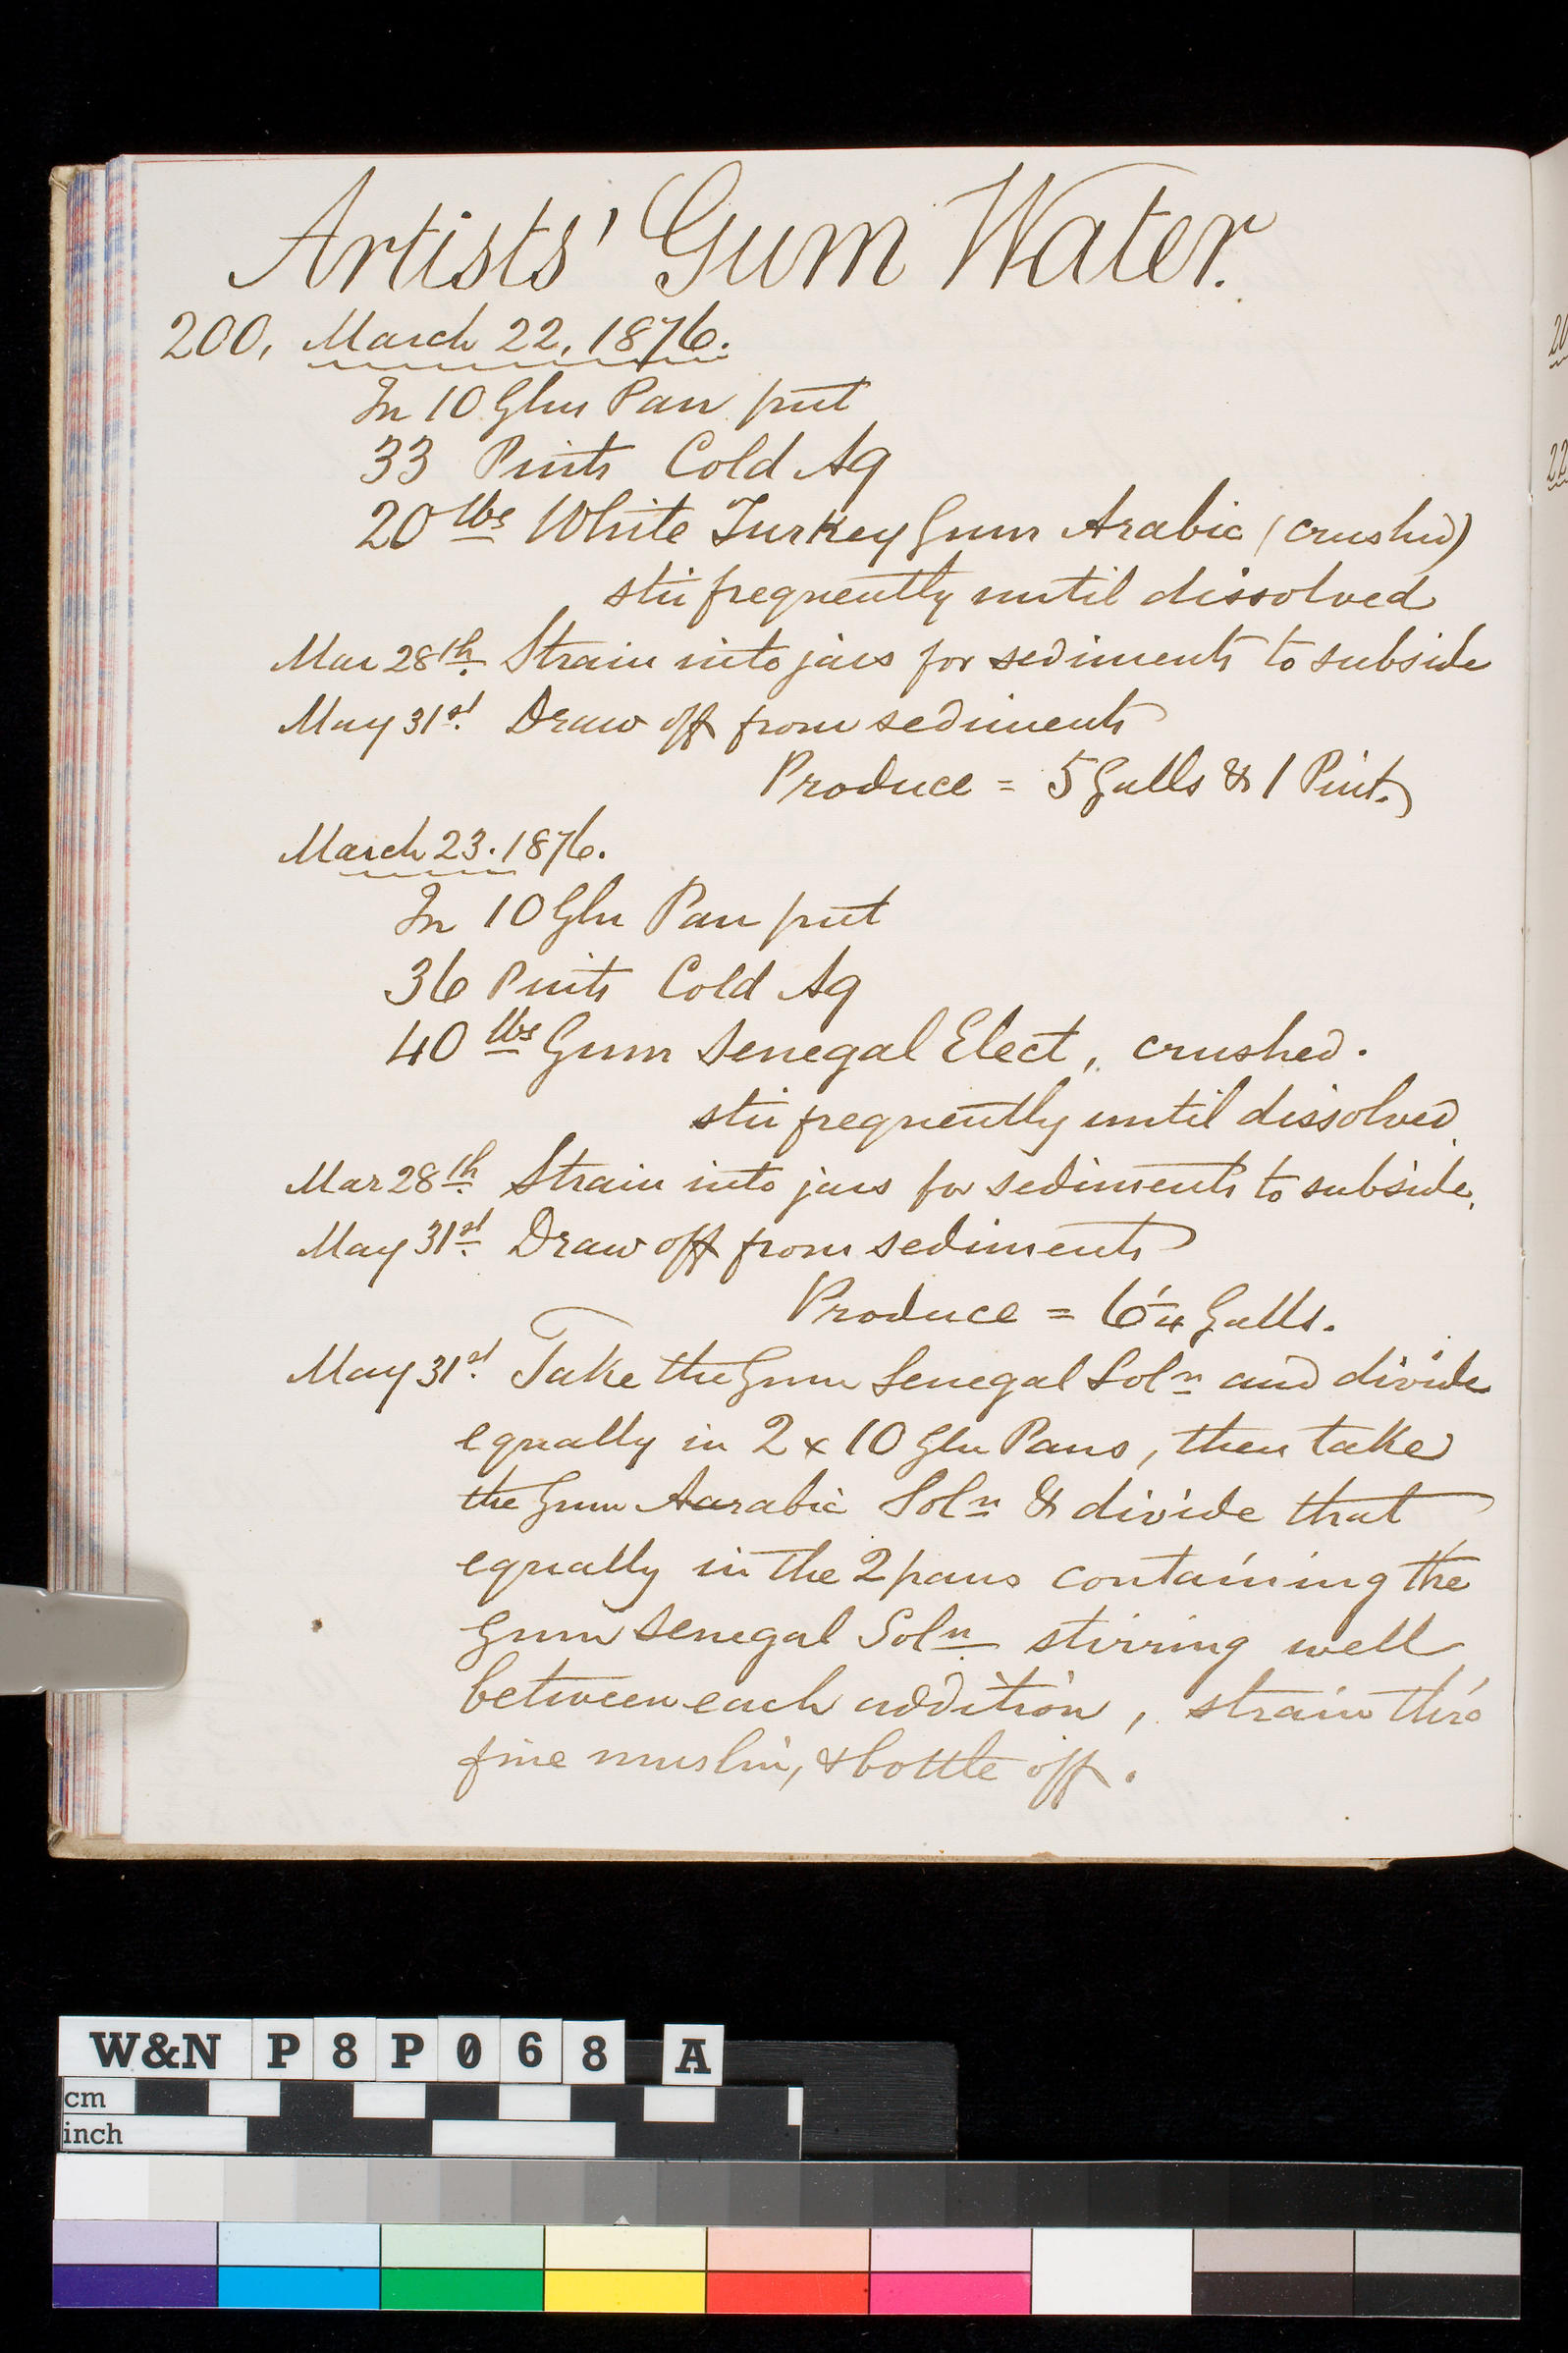 Artists' Gum Water.
200, March 22, 1876.
In 10 Gln Pan put
33 Pints Cold Aq
20 lbs White Turkey Gum Arabic (crushed)
stir frequently until dissolved
Mar 28th Strain into jars for sediments to subside
May 31st Draw off from sediments
Produce = 5 Galls & 1 Pint.
March 23. 1876.
In 10 Gln Pan put
36 Pints Cold Aq
40 lbs Gum Senegal Elect, crushed.
stir frequently until dissolved
Mar 28th Strain into jars for sediments to subside.
May 31st Draw off from sediments
Produce = 6 1/4 Galls.
May 31st Take the Gum Senegal Soln and divide
equally in 2 x 10 Gln Pans, then take
the Gum Aarabic Soln & divide that
equally in the 2 pans containing the
Gum Senegal Soln stirring well
between each addition, strain thro'
fine muslin, & bottle off.
W&N P8P068 A
cm
inch